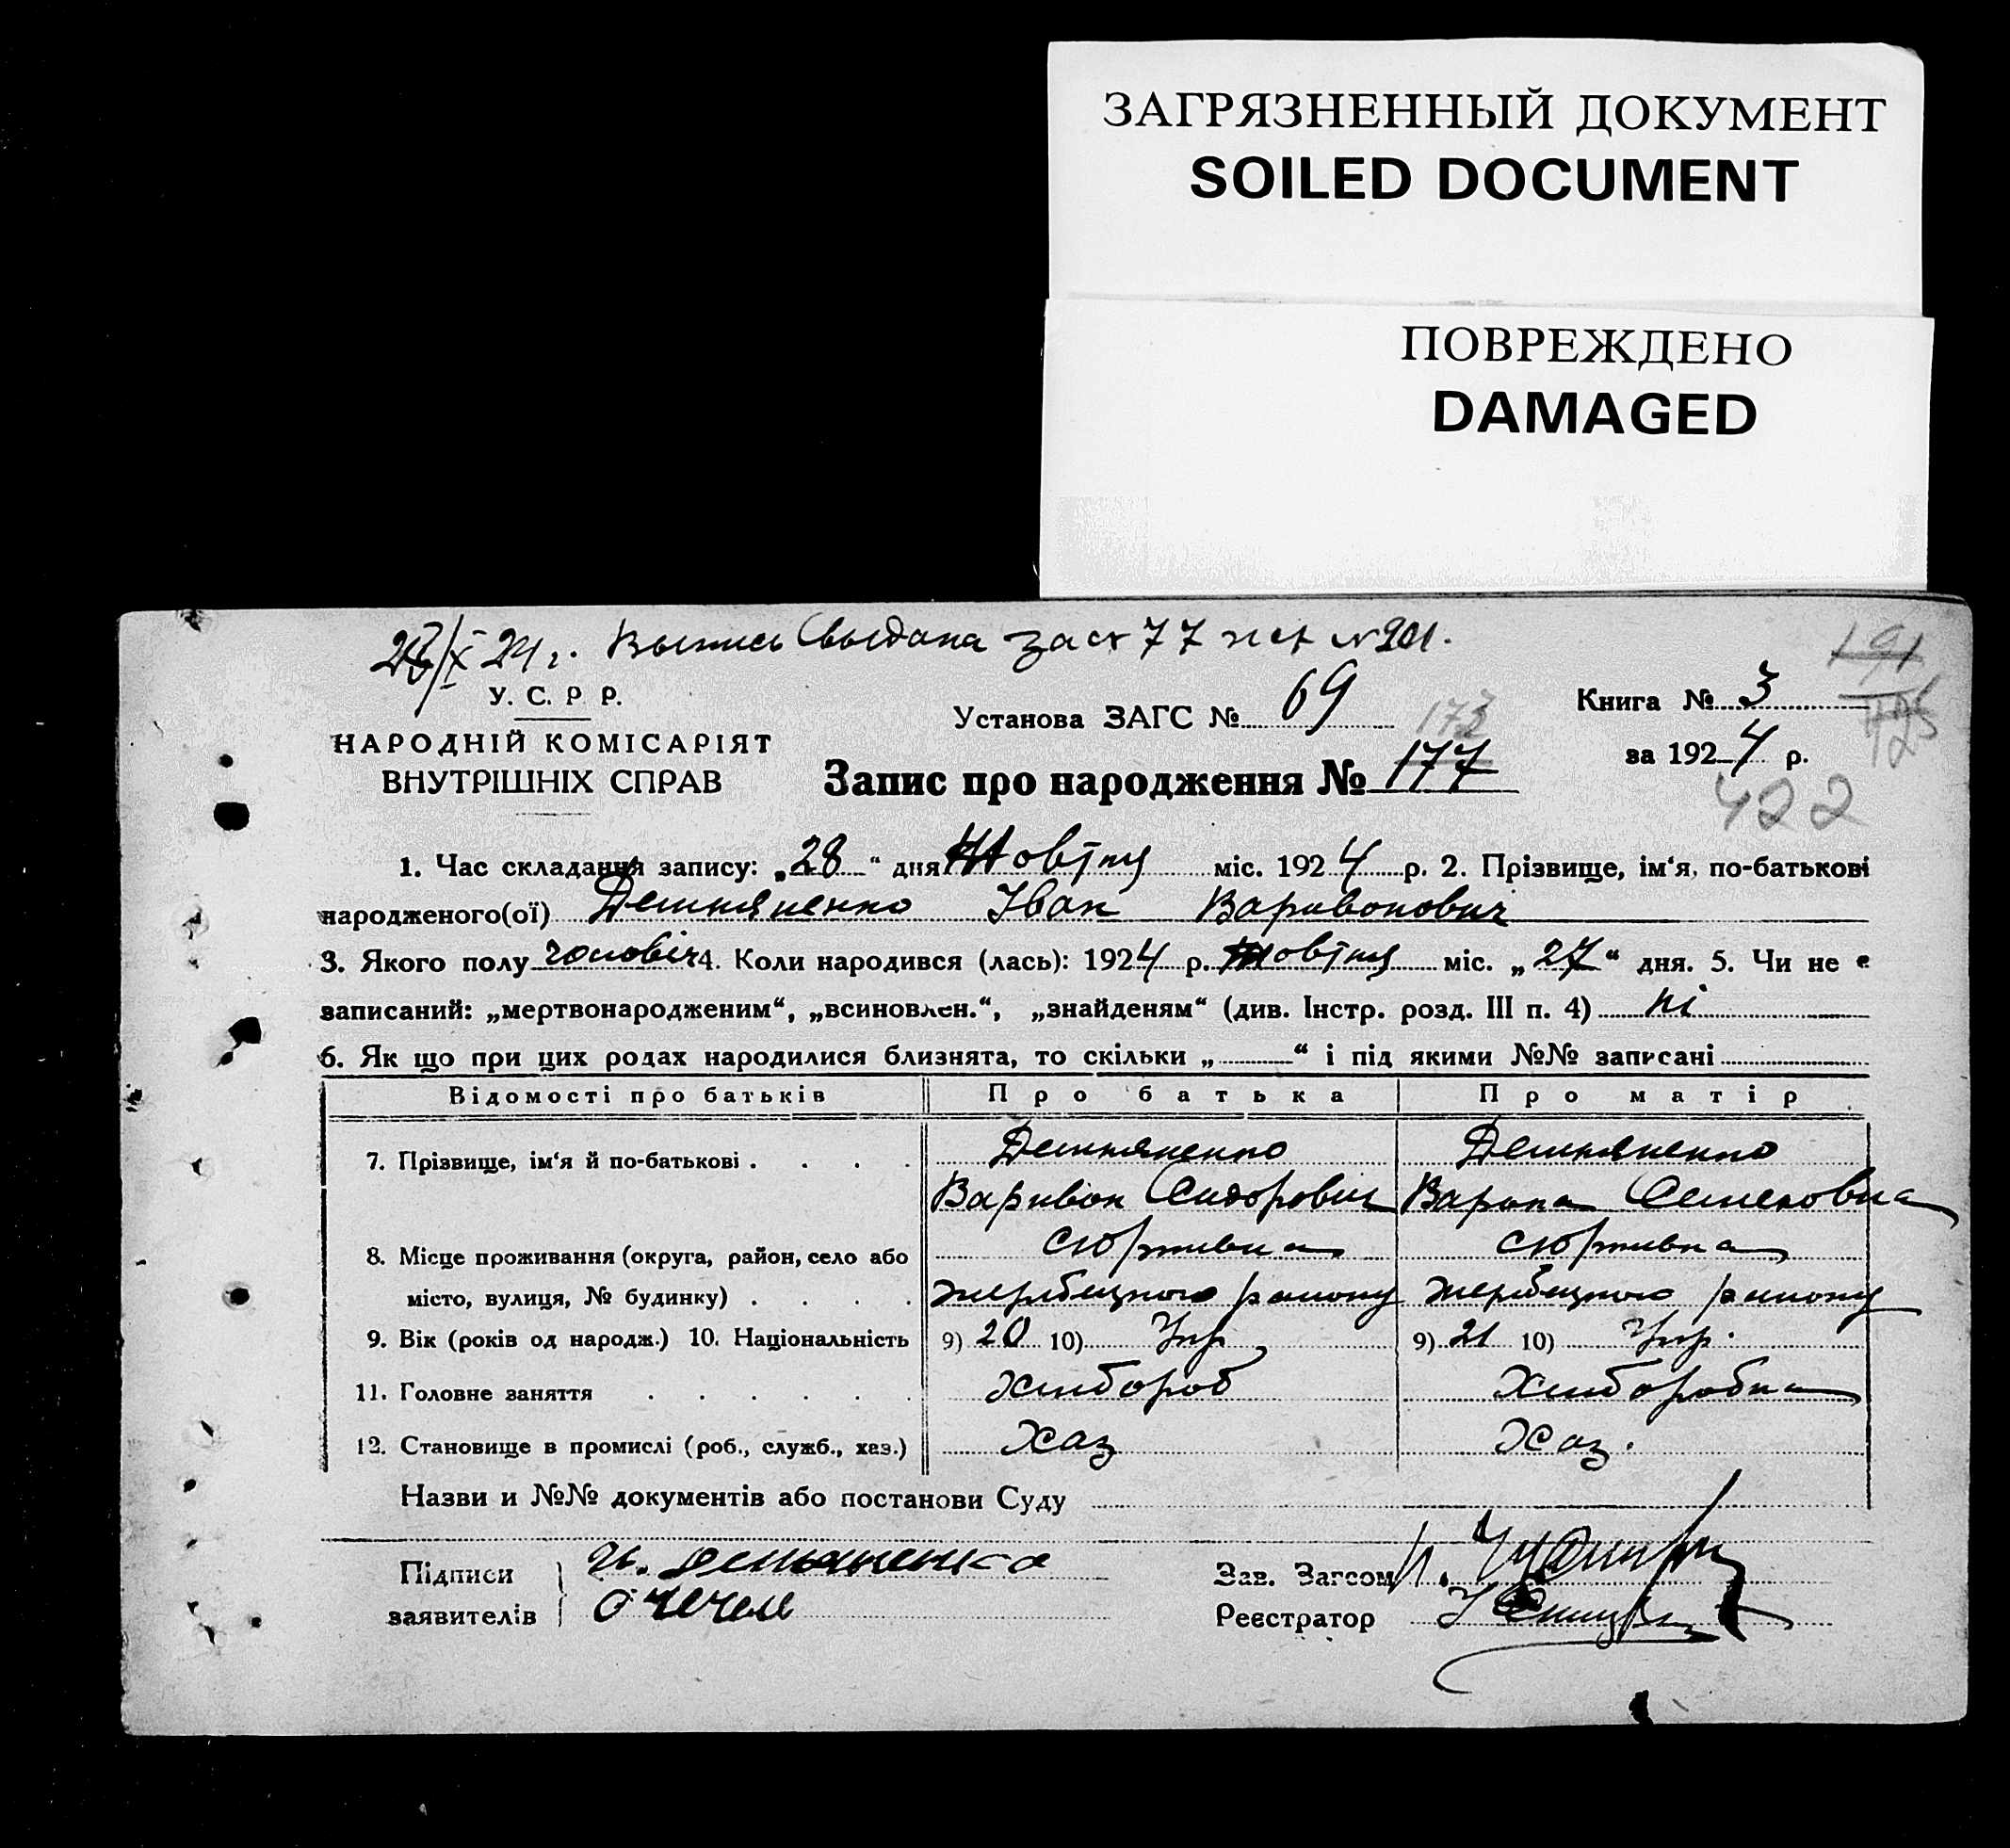 ЗАГРЯЗНЕННЫЙ ДОКУМЕНТ
SOILED DOCUMENT
ПОВРЕЖДЕНО
DAMAGED
Х 24 г. Выпись выдана за № 201.
У. С. Р Р.
НАРОДНІЙ КОМІСАРІЯТ
ВНУТРІШНІХ СПРАВ
Установа ЗАГС № 69
173
Запис про народження № 177
Книга № 3
за 1924 р.
191
422
1. Час складання запису: „28“ дня Жовтня міс. 1924 р. 2. Прізвище, ім‘я, по-батькові
народженого(ої) Іван Варивонович
3. Якого полу чоловіч 4. Коли народився (лась): 1924 р. Жовтня міс. „27“ дня. 5. Чи не є
записаний: „мертвонародженим“, „всиновлен.“, „знайденям“ (див. Інстр. розд. III п. 4) ні
6. Як що при цих родах народилися близнята, то скільки „ “ і під якими №№ записані
Відомості про батьків Про батька Про матір
7. Прізвище, ім‘я й по-батькові
Варивон Сидорович Семеновна
8. Місце проживання (округа, район, село або
місто, вулиця, № будинку) району району
9. Вік (років од народж.) 10. Національність 9) 20 10) Укр 9) 21 10) Укр.
11. Головне заняття Хлібороб Хліборобка
12. Становище в промислі (роб., служб., хаз.) Хаз Хаз.
Назви и №№ документів або постанови Суду
Підписи
заявителів
Зав. Загсом
Реєстратор